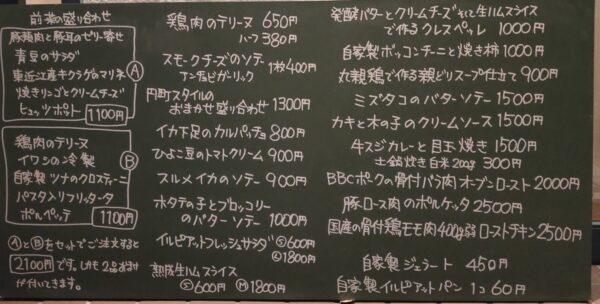 前菜の盛り合わせ
豚頬肉と豚耳のゼリー寄せ
青豆のサラダ
東近江産キクラゲのマリネ
焼きリンゴとクリームチーズ
ヒュッツポット 1100円
Ⓐ
鶏肉のテリーヌ
イワシの冷製
自家製ツナのクロスティーニ
パスタ入りフリッタータ
ポルペッテ 1100円
Ⓑ
ⒶとⒷをセットでご注文すると
2100円です。しかも2品おまけ
が付いてきます。
鶏肉のテリーヌ 650円
ハーフ380円
スモークチーズのソテー
アンチョビガーリック 1枚400円
円町スタイルの
おまかせ盛り合わせ 1300円
イカ下足のカルパッチョ 800円
ひよこ豆のトマトクリーム 900円
スルメイカのソテー 900円
ホタテの子とブロッコリー
のバターソテー 1000円
イルピアットフレッシュサラダ Ⓢ600円
Ⓛ1800円
熟成生ハムスライス
Ⓢ600円 Ⓜ1800円
発酵バターとクリームチーズそして生ハムスライス
で作るクレスペッレ 1000円
自家製ボッコンチーニと焼き柿 1000円
丸親鶏で作る親どりスープ仕立て 900円
ミズタコのバターソテー 1500円
カキと木の子のクリームソース 1500円
牛スジカレーと目玉焼き 1500円
土鍋焼き白米200g 300円
BBCポークの骨付バラ肉オーブンロースト 2000円
豚ロース肉のポルケッタ 2500円
国産の骨付鶏モモ肉400g弱ローストチキン 2500円
自家製ジェラート 450円
自家製イルピアットパン 1コ60円